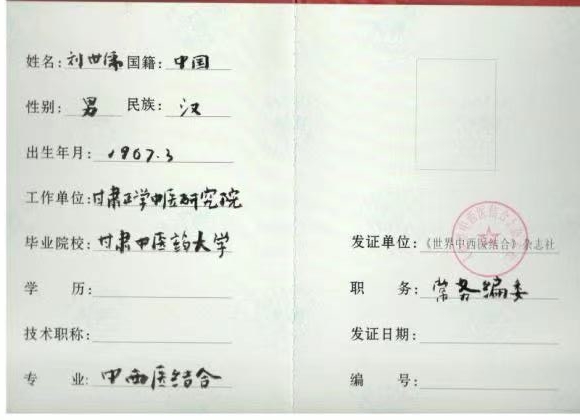 姓名:刘世儒 国籍:中国
性别:男 民族:汉
出生年月:1967.3
工作单位:甘肃正学中医研究院
毕业院校:甘肃中医药大学
学 历:
技术职称:
专 业:中西医结合
发证单位:《世界中西医结合》杂志社
职 务:常务编委
发证日期:
编 号: